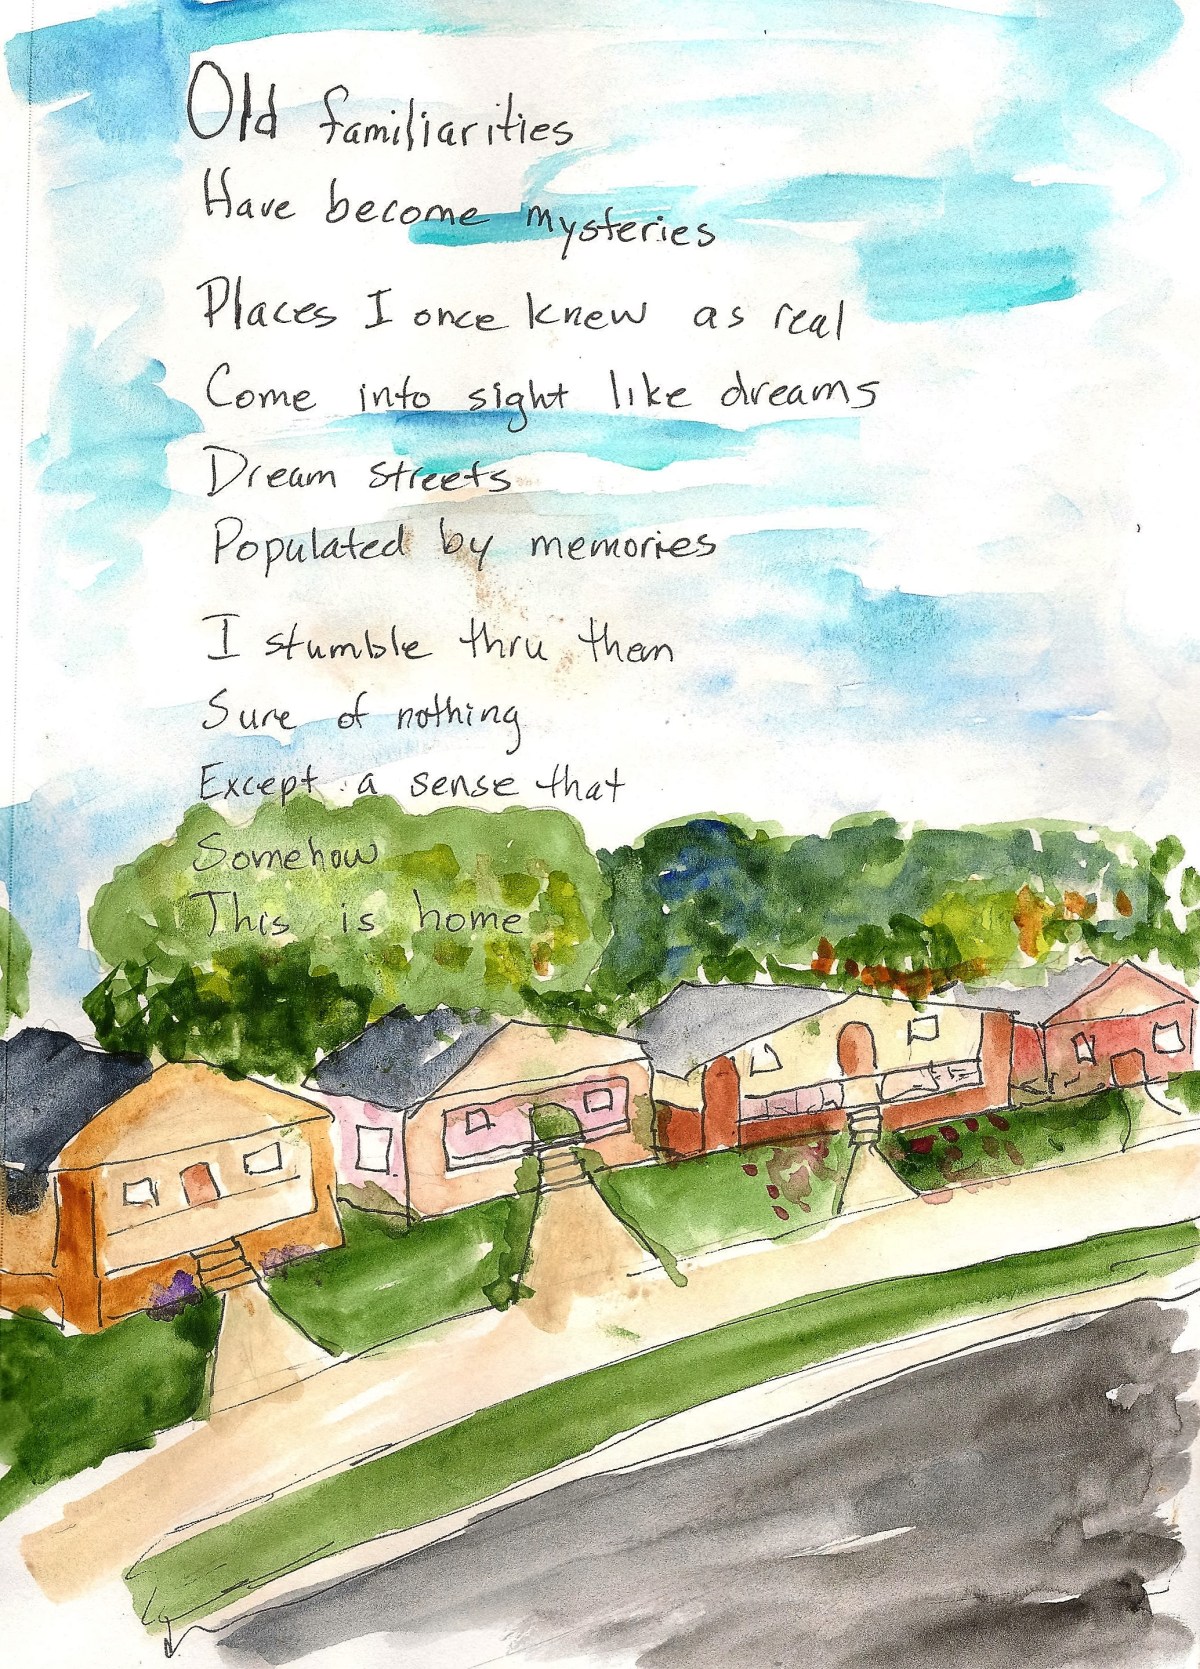 Old familiarities
Have become mysteries
Places I once knew as real
Come into sight like dreams
Dream streets
Populated by memories
I stumble thru them
Sure of nothing
Except a sense that
Somehow
This is home